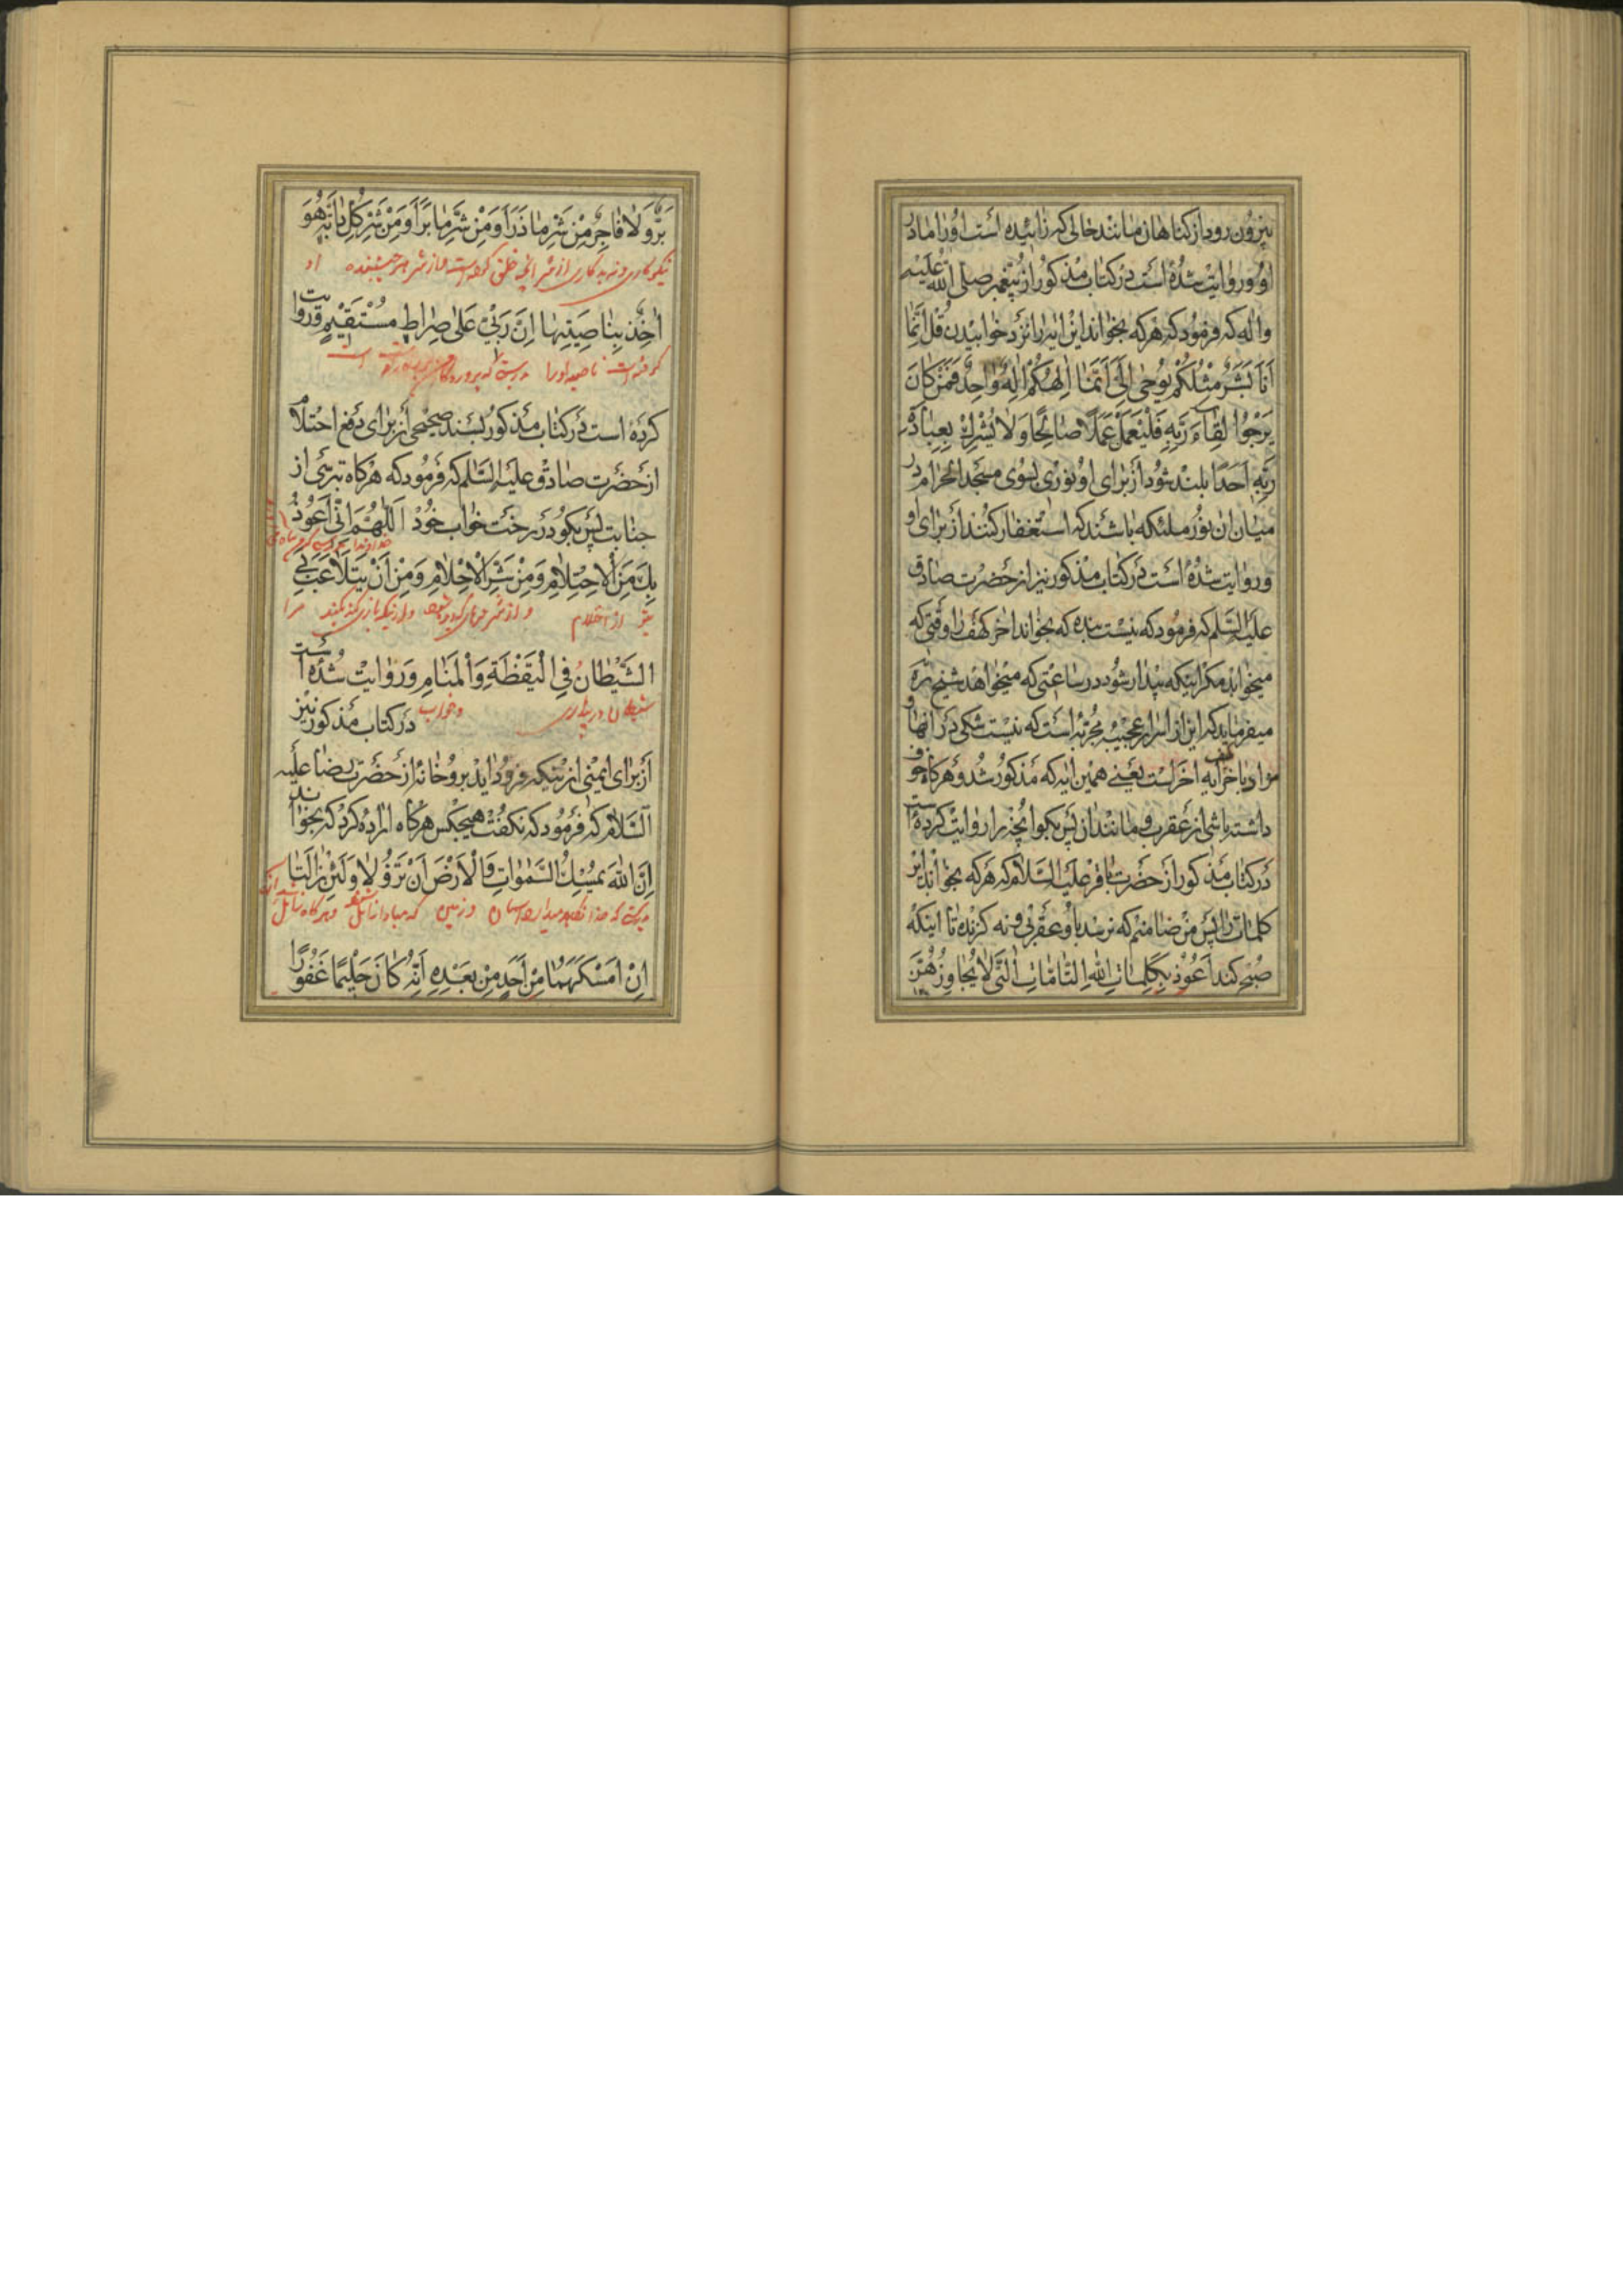 بیرون رود از کناهان مانند خالی که زائیده است او را مادر
او و روایت شده است در کتاب مذکور از پیغمبر صلی الله علیه
واله که فرمود که هرکه بخواند این ایه را نزد خوابیدن قُل اِنَّمَا
اَنَا بَشَرٌ مِثْلُکُمْ یُوحٰی اِلَیَّ اَنَّمَا اِلٰهُکُمْ اِلٰهٌ وَاحِدٌ فَمَنْ کَانَ
یَرْجُوا لِقَاءَ رَبِّهِ فَلْیَعْمَلْ عَمَلًا صَالِحًا وَلَا یُشْرِكْ بِعِبَادَةِ
رَبِّهِ اَحَدًا بلند شود از برای او نوری بسوی مسجد الحرام در
میان ان نور ملئکه باشند که استغفار کنند از برای او
و روایت شده است در کتاب مذکور نیز از حضرت صادق
علیه السّلم که فرمود که نیست بنده که بخواند اخر کهف را وقتی که
میخوابد مکر اینکه بیدار شود در ساعتی که میخواهد شیخ ره
میفرماید که این از اسرار عجیبه مجربه است که نیست شکی در انها و
مراد باخر کهف ایه اخر است یعنی همین ایه که مذکور شد و هرکاه خوف
داشته باشی از عقرب و مانند ان پس بکو انچه را روایت کرده است
در کتاب مذکور از حضرت باقر علیه السّلام که هرکه بخواند این
کلمات را پس من ضامنم که نرسد باو عقربی و نه کزنده تا اینکه
صبح کند اَعُوْذُ بِکَلِمَاتِ اللهِ التَّامَّاتِ الَّتِی لَا یُجَاوِزُهُنَّ
بَرٌّ وَلَا فَاجِرٌ مِنْ شَرِّ مَا ذَرَاَ وَمِنْ شَرِّ مَا بَرَاَ وَمِنْ شَرِّ کُلِّ دَابَّةٍ هُوَ
نیکوکاری و نه بدکاری از شر انچه خلق کرده است و از شر هر جنبنده او
اٰخِذٌ بِنَاصِیَتِهَا اِنَّ رَبِّیْ عَلٰی صِرَاطٍ مُسْتَقِیْمٍ و روایت
کرفته است ناصیه او را بدرستیکه پروردکار من است
کرده است در کتاب مذکور بسند صحیحی از برای دفع احتلام
از حضرت صادق علیه السّلم که فرمود که هرکاه بترسی از
جنابت پس بکو در رخت خواب خود اَللّٰهُمَّ اِنِّی اَعُوْذُ
خداوندا بدرستیکه من پناه
بِكَ مِنَ الْاِحْتِلَامِ وَمِنْ شَرِّ الْاَحْلَامِ وَمِنْ اَنْ یَتَلَاعَبَ بِیَ
بتو از احتلام و از شر و از اینکه بازی کند مرا
الشَّیْطَانُ فِی الْیَقَظَةِ وَالْمَنَامِ و روایت شده است
شیطان در بیداری و خواب
در کتاب مذکور نیز
از برای ایمنی از اینکه فرود اید برو خانه از حضرت رضا علیه
السّلام که فرمود که نکفت هیچکس هرکاه اراده کرد که بخوابد
اِنَّ اللهَ یُمْسِكُ السَّمٰوَاتِ وَالْاَرْضَ اَنْ تَزُوْلَا وَلَئِنْ زَالَتَا
بدرستیکه خدا نکاه میدارد اسمان و زمین که مبادا زائل شوند و هرکاه زائل
اِنْ اَمْسَکَهُمَا مِنْ اَحَدٍ مِنْ بَعْدِهِ اِنَّهُ کَانَ حَلِیْمًا غَفُوْرًا